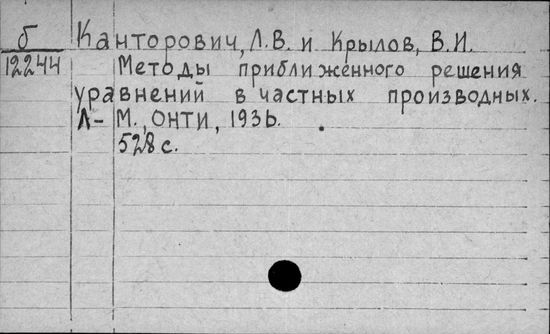 б Канторович, Л.В. и Крылов, В.И.
12244 Методы приближенного решения
уравнений в частных производных.
Л-М., ОНТИ, 1936.
528 с.